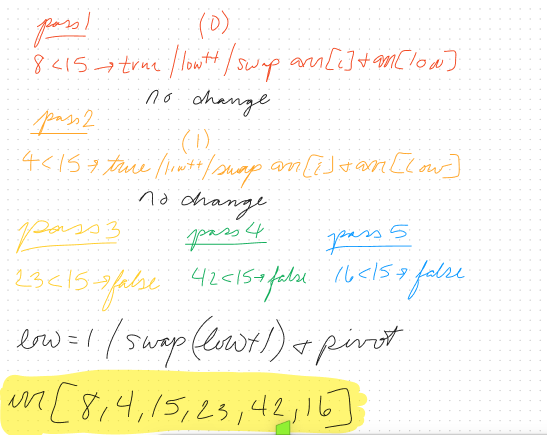 pass 1 (0)
8 < 15 → true / low++ / swap arr[i] + arr[low]
no change
pass 2
(1)
4 < 15 → true / low++ / swap arr[i] + arr[low]
no change
pass 3 pass 4 pass 5
23 < 15 → false 42 < 15 → false 16 < 15 → false
low = 1 / swap (low+1) + pivot
arr [8, 4, 15, 23, 42, 16]